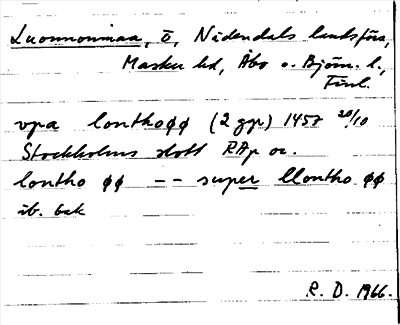 Luonnonmaa, ö, Nådendals landsförs,
Masku hd, Åbo o. Björn. l.,
Finl.
vpa lonthoøø (2 ggr) 1457 20/10
Stockholms slott RAp or.
lontho øø -- super llontho øø
ib. bak
R. D. 1966.